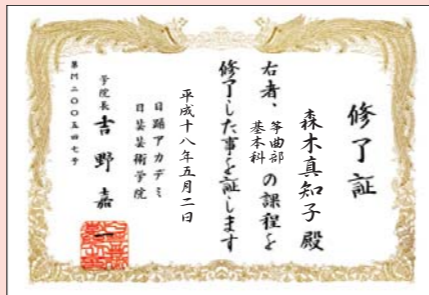 修了証
森木真知子殿
右者、箏曲部
基本科
の課程を
修了した事を証します
平成十八年五月二日
日踊アカデミ
日芸芸術学院
学院長 吉野嘉一